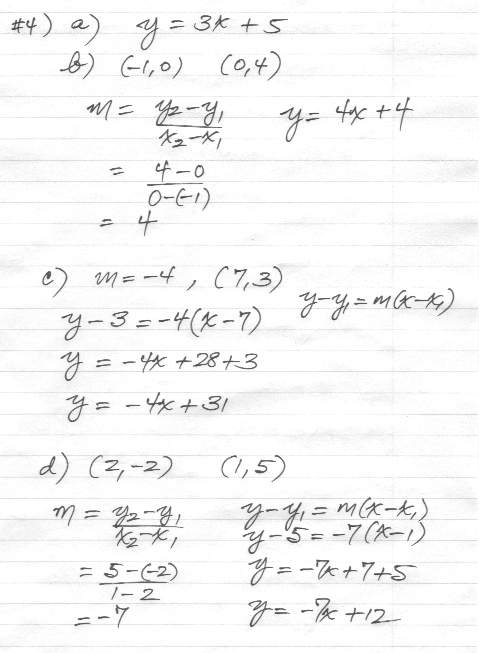 #4) a) y = 3x + 5
b) (-1,0) (0,4)
m = y₂-y₁/x₂-x₁ y = 4x + 4
= 4-0/0-(-1)
= 4
c) m = -4 , (7,3)
y-y₁ = m(x-x₁)
y - 3 = -4(x-7)
y = -4x + 28 + 3
y = -4x + 31
d) (2,-2) (1,5)
m = y₂-y₁/x₂-x₁ y-y₁ = m(x-x₁)
y-5 = -7(x-1)
= 5-(-2)/1-2 y = -7x+7+5
= -7 y = -7x +12